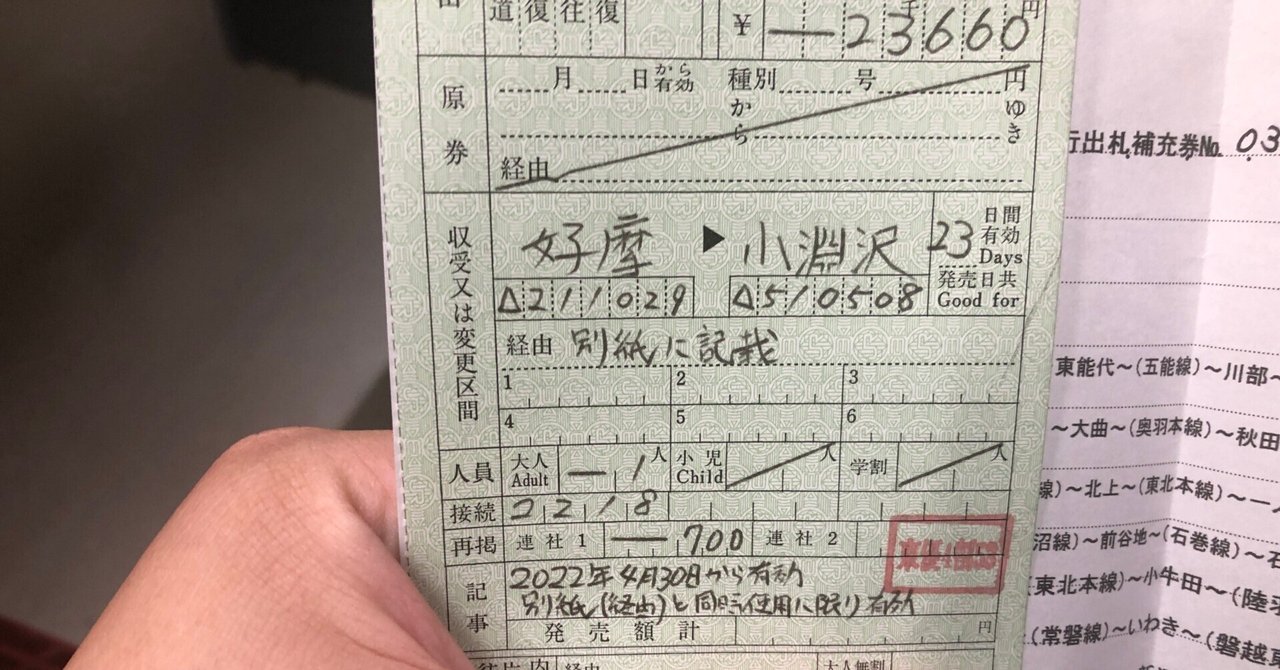 道 復 往 復
¥ 一23660 円
原券 月 日から有効 種別 号 円
から ゆき
経由
収受又は変更区間 好摩 ▶ 小淵沢 23 日間有効 Days
△211029 △510508 発売日共 Good for
経由 別紙に記載
1 2 3
4 5 6
人員 大人 Adult 一1人 小児 Child 人 学割 人
接続 2218
再掲 連社1 一700 連社2
記事 2022年4月30日から有効
別紙(経由)と同時使用に限り有効
発売額計 円
経由
行出札補充券No. 03
東能代～(五能線)～川部～
～大曲～(奥羽本線)～秋田
線)～北上～(東北本線)～一
沼線)～前谷地～(石巻線)～石
東北本線)～小牛田～(陸
(常磐線)～いわき～(磐越